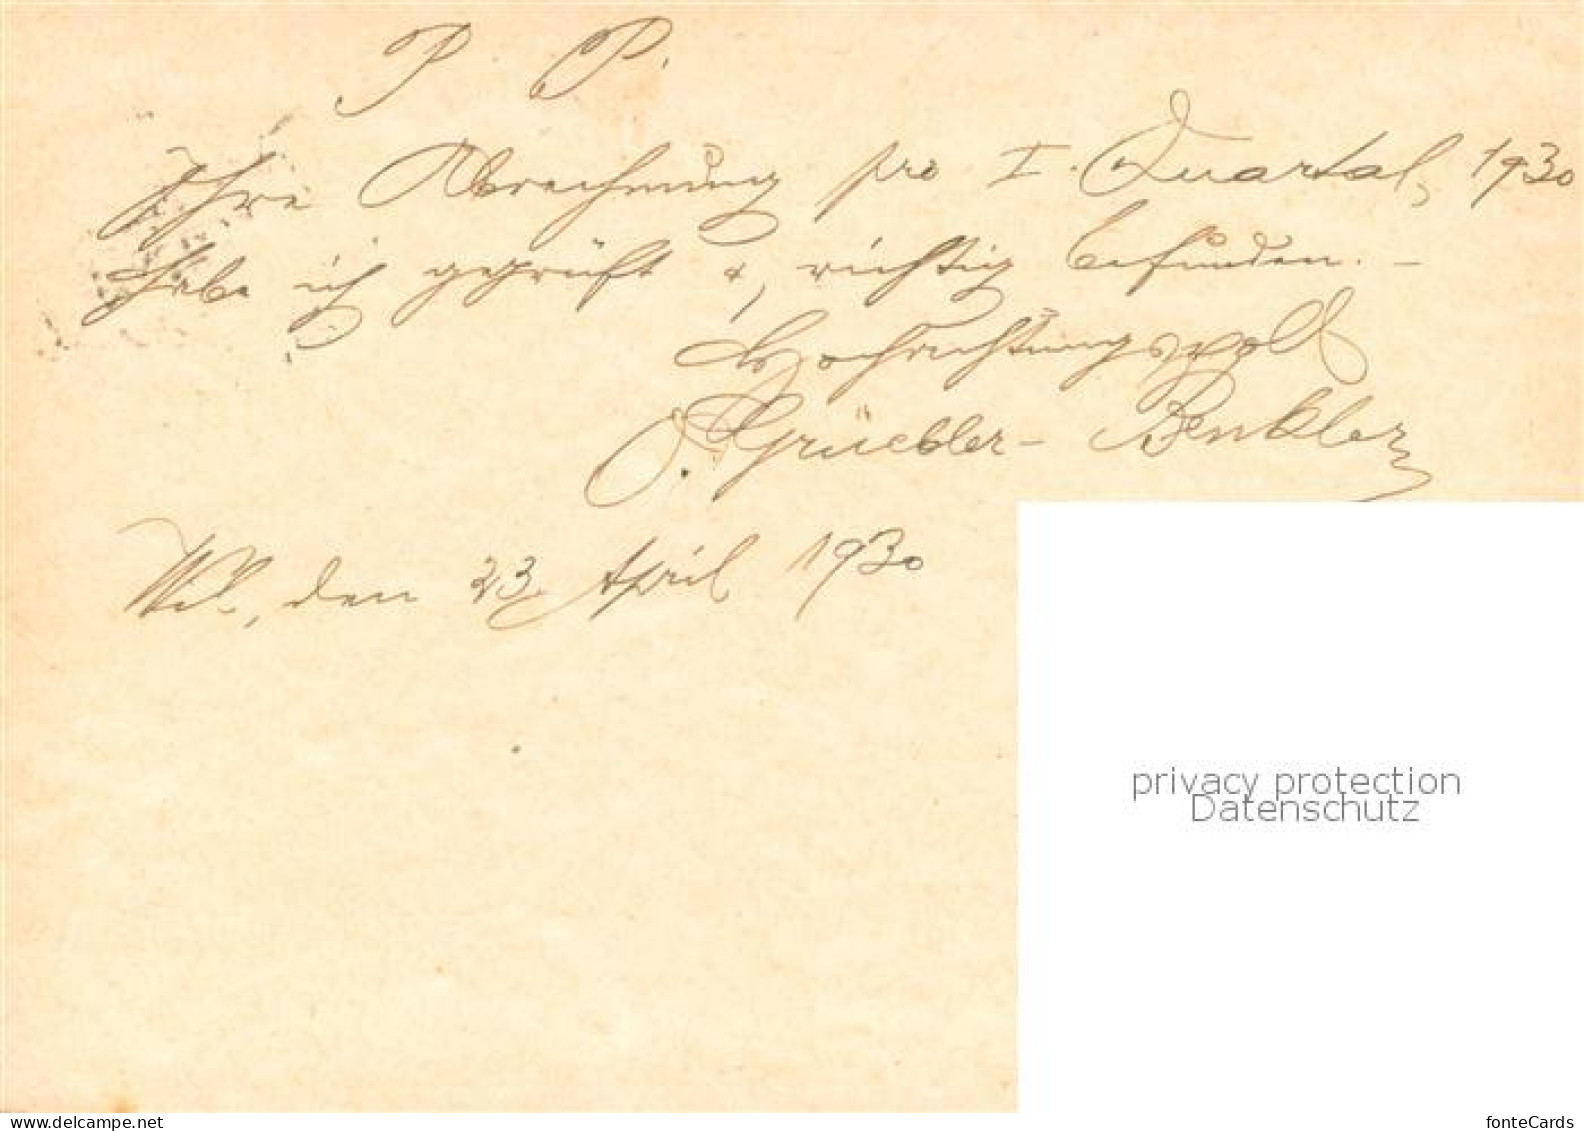 P. P.
Ihre Abrechnung pro I. Quartal, 1930
habe ich geprüft &, richtig befunden. –
Hochachtungsvoll
O. Grüebler- Benkler
Wil, den 23. April 1930
privacy protection
Datenschutz
www.delcampe.net
fonteCards